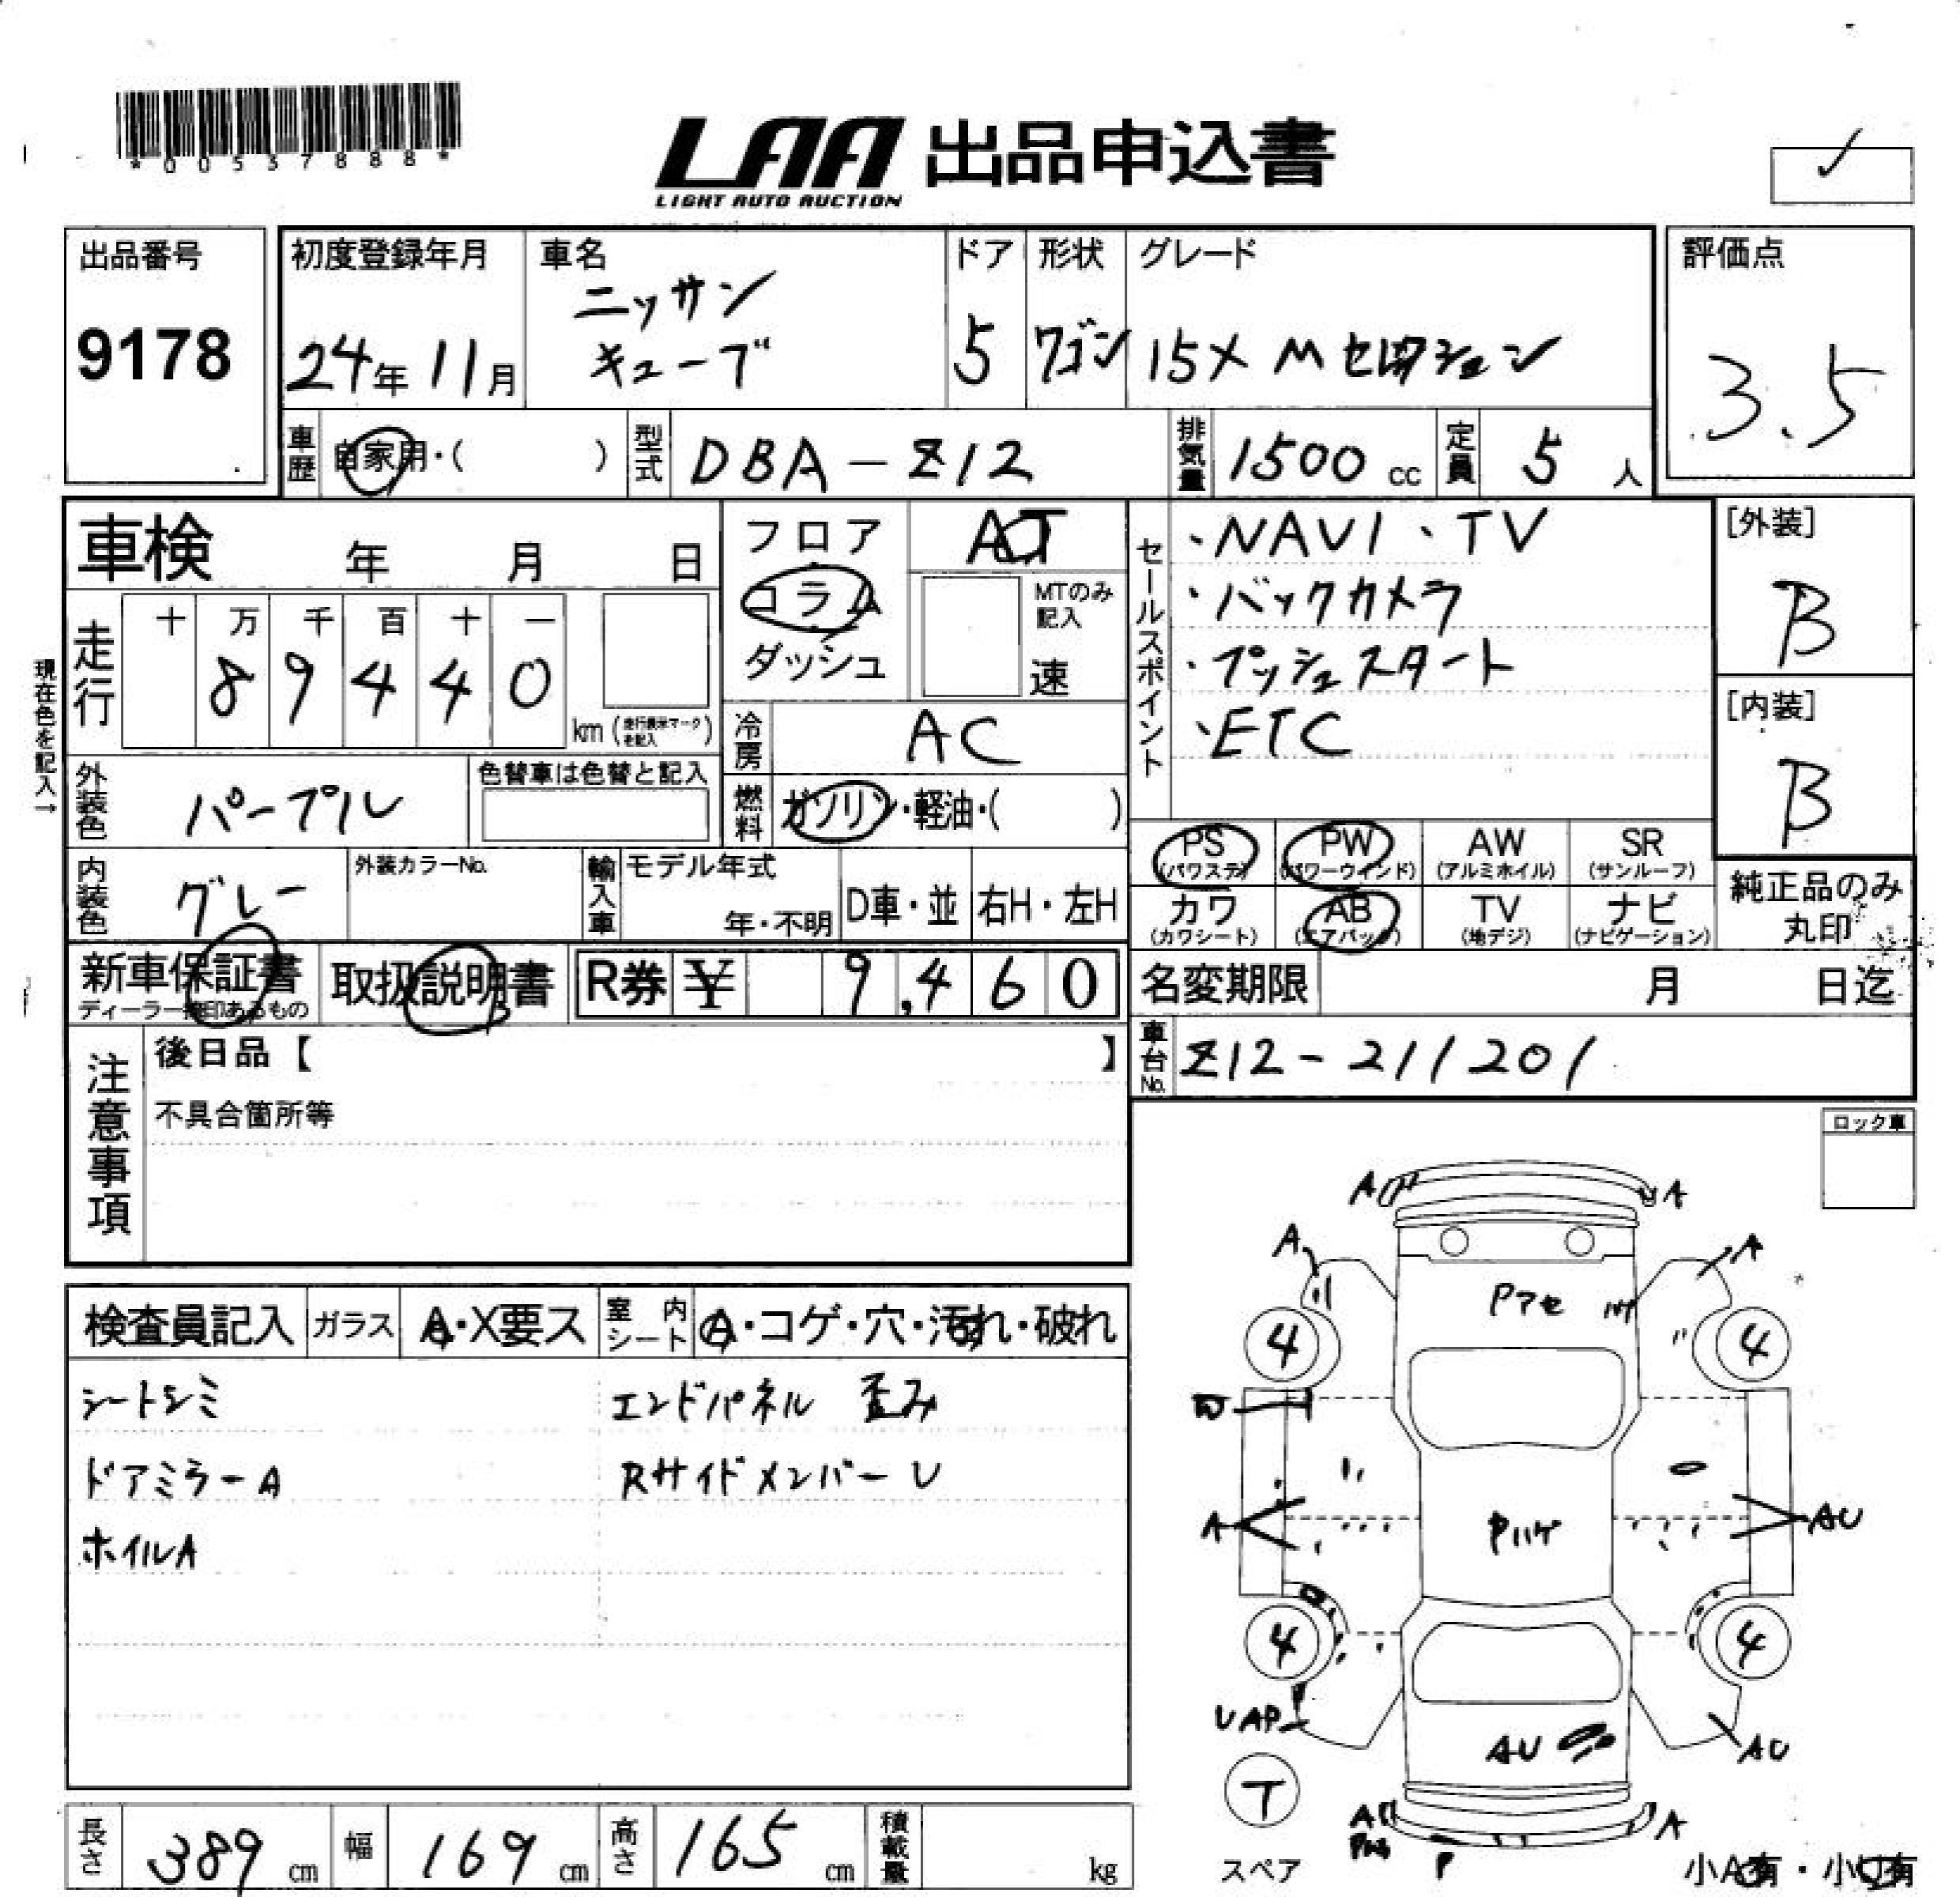 *00537888*
LAA 出品申込書
LIGHT AUTO AUCTION
出品番号
9178
初度登録年月
24年11月
車名
ニッサン
キューブ
ドア
5
形状
ワゴン
グレード
15X Mセレクション
評価点
3.5
車歴 自家用・( )
型式 DBA-Z12
排気量 1500 cc
定員 5 人
車検 年 月 日
走行
十 万 千 百 十 一
8 9 4 4 0
km (走行表示マークを記入)
現在色を記入→
フロア
コラム
ダッシュ
AT
MTのみ記入
速
冷房 AC
燃料 ガソリン・軽油・( )
外装色 パープル
色替車は色替と記入
内装色 グレー
外装カラーNo.
輸入車
モデル年式
年・不明
D車・並
右H・左H
セールスポイント
・NAVI・TV
・バックカメラ
・プッシュスタート
・ETC
[外装]
B
[内装]
B
PS (パワステ)
PW (パワーウインド)
AW (アルミホイル)
SR (サンルーフ)
カワ (カワシート)
AB (エアバッグ)
TV (地デジ)
ナビ (ナビゲーション)
純正品のみ丸印
新車保証書
取扱説明書
R券 ¥ 9,460
名変期限 月 日迄
車台No. Z12-211201
注意事項
後日品【 】
不具合箇所等
ロック車
検査員記入
ガラス A・X要ス
室内シート A・コゲ・穴・汚れ・破れ
シートシミ
エンドパネル 歪み
ドアミラーA
Rサイドメンバー U
ホイルA
A A
A A
Pアセ ハゲ
4 4
A Pハゲ AU
4 4
UAP AU AU
T
スペア
A A
P
小A有・小U有
長さ 389 cm
幅 169 cm
高さ 165 cm
積載量 kg